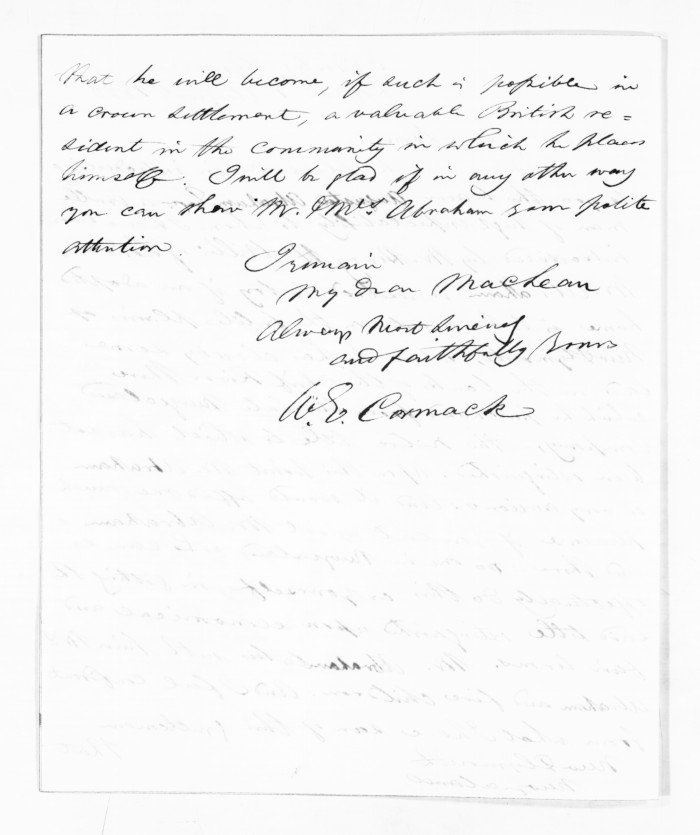 that he will become, if such is possible in
a crown settlement, a valuable British re=
sident in the community in which he places
himself. I will be glad if in any other way
you can show Mr. & Mrs Abraham some polite
attention.
I remain
My dear MacLean
Always Most sincerely
and faithfully Yours
W. E. Cormack